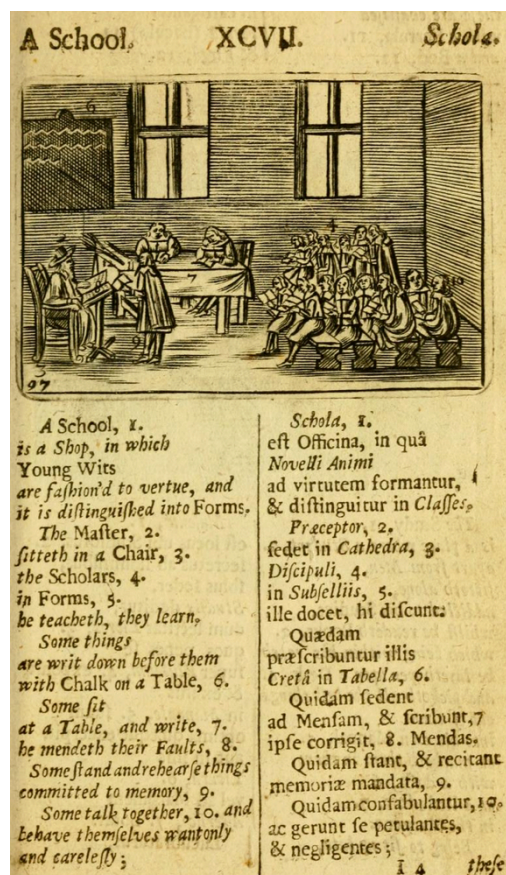 A School. XCVII. Schola.
6
4
7
10
2
9
3
97
A School, 1.
is a Shop, in which
Young Wits
are faſhion'd to vertue, and
it is diſtinguiſhed into Forms.
The Maſter, 2.
ſitteth in a Chair, 3.
the Scholars, 4.
in Forms, 5.
he teacheth, they learn.
Some things
are writ down before them
with Chalk on a Table, 6.
Some ſit
at a Table, and write, 7.
he mendeth their Faults, 8.
Some ſtand and rehearſe things
committed to memory, 9.
Some talk together, 10. and
behave themſelves wantonly
and careleſly;
Schola, 1.
eſt Officina, in quâ
Novelli Animi
ad virtutem formantur,
& diſtinguitur in Claſſes.
Præceptor, 2.
ſedet in Cathedra, 3.
Diſcipuli, 4.
in Subſelliis, 5.
ille docet, hi diſcunt.
Quædam
præſcribuntur illis
Cretâ in Tabella, 6.
Quidam ſedent
ad Menſam, & ſcribunt,7
ipſe corrigit, 8. Mendas.
Quidam ſtant, & recitant
memoriæ mandata, 9.
Quidam confabulantur, 10.
ac gerunt ſe petulantes,
& negligentes;
I 4 theſe